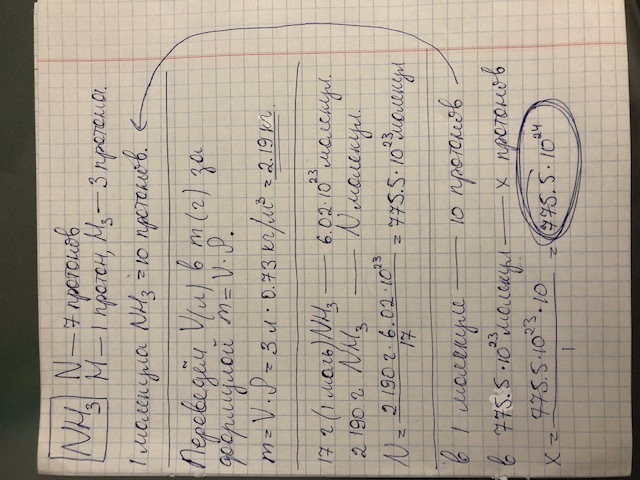 NH3 N — 7 протонов
H — 1 протон, H3 — 3 протона.
1 молекула NH3 = 10 протонов.
Переведём V(л) в m(г) за
формулой m = V·ρ.
m = V·ρ = 3 л · 0.73 кг/м³ = 2.19 кг.
17 г (1 моль) NH3 — 6.02·10²³ молекул.
2190 г NH3 — N молекул.
N = 2190 г · 6.02·10²³ / 17 = 775.5·10²³ молекул
в 1 молекуле — 10 протонов
в 775.5·10²³ молекул — x протонов
x = 775.5·10²³·10 / 1 = 775.5·10²⁴